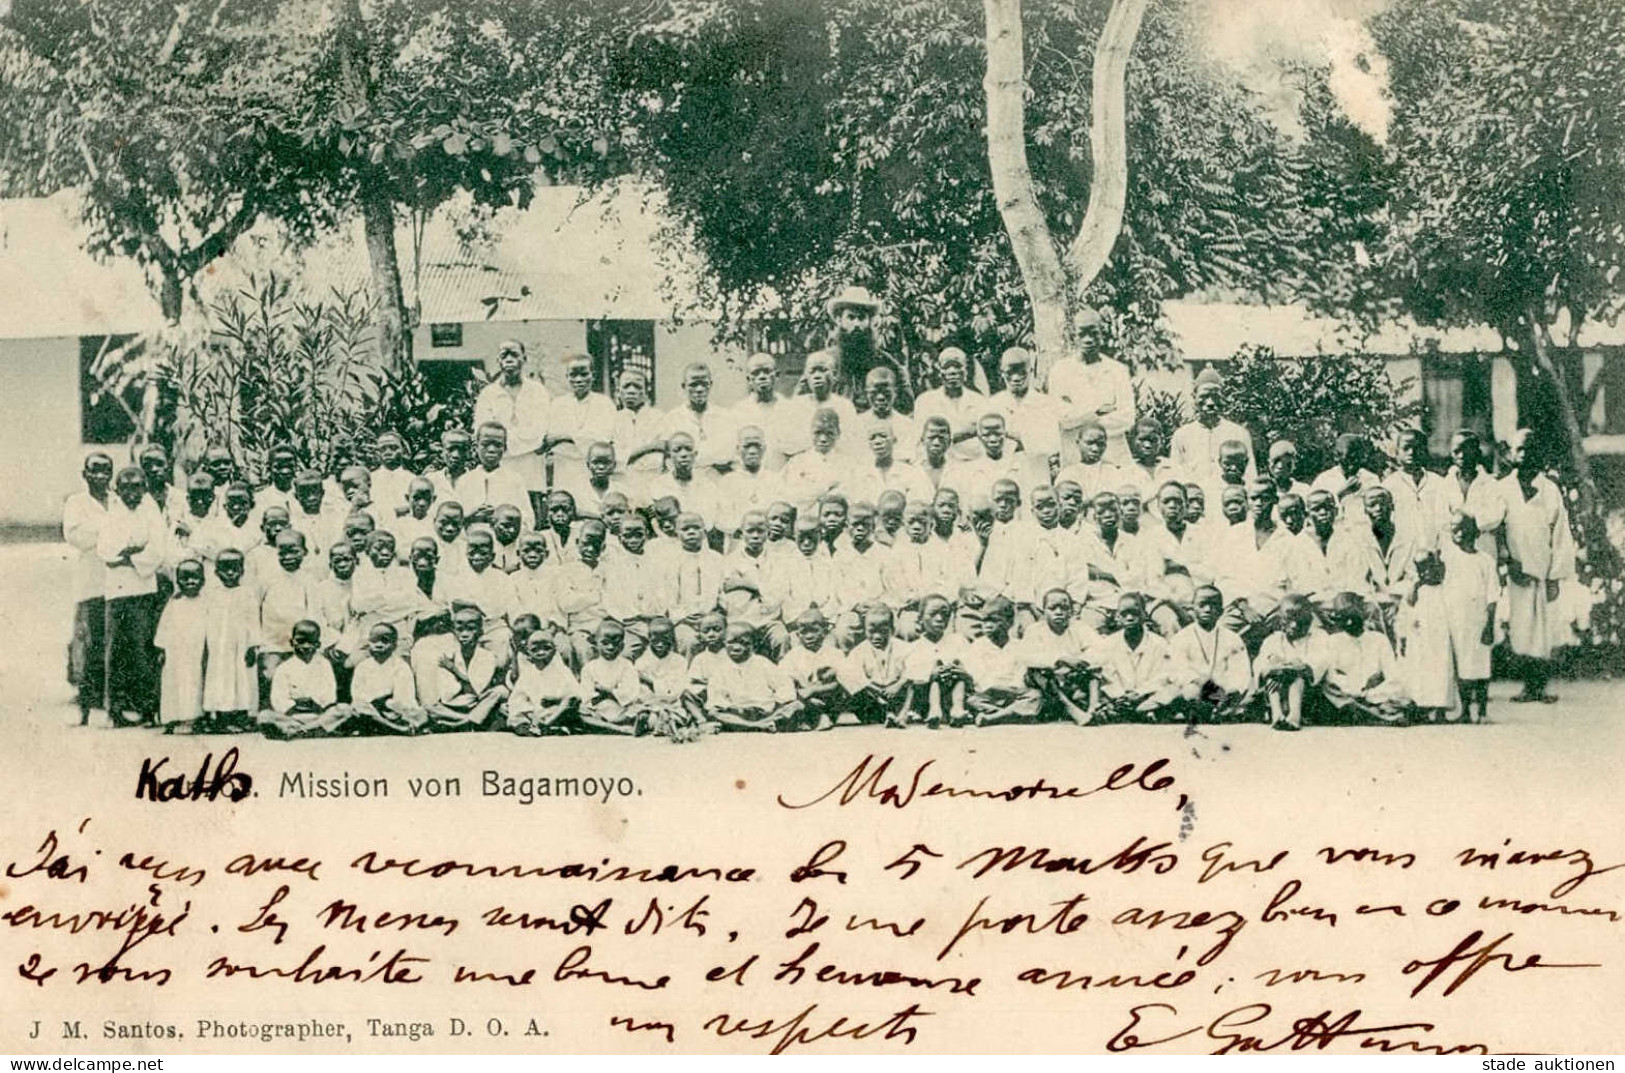 Kath. Mission von Bagamoyo.
Mademoiselle,
J'ai reçu avec reconnaissance les 5 Marks que vous m'avez
envoyé. Les Messes seront dits. Je me porte assez bien en ce moment
Je vous souhaite une bonne et heureuse année; vous offre
mes respects E
J M. Santos. Photographer, Tanga D. O. A.
stade auktionen